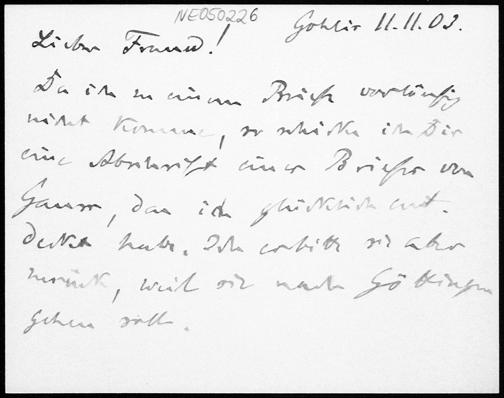 NE050226
Gohlis 11.11.02.
Lieber Freund!
Da ich zu einem Briefe vorläufig
nicht komme, so schicke ich Dir
eine Abschrift eines Briefes von
Gauss, den ich glücklich ent-
deckt habe. Ich erbitte sie aber
zurück, weil sie nach Göttingen
gehen soll.